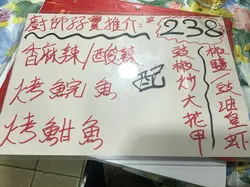 廚師孖寶推介
238
香麻辣/酸辣
烤鯇魚
烤魽魚
配
豉椒炒大花甲
椒鹽/豉油皇虾